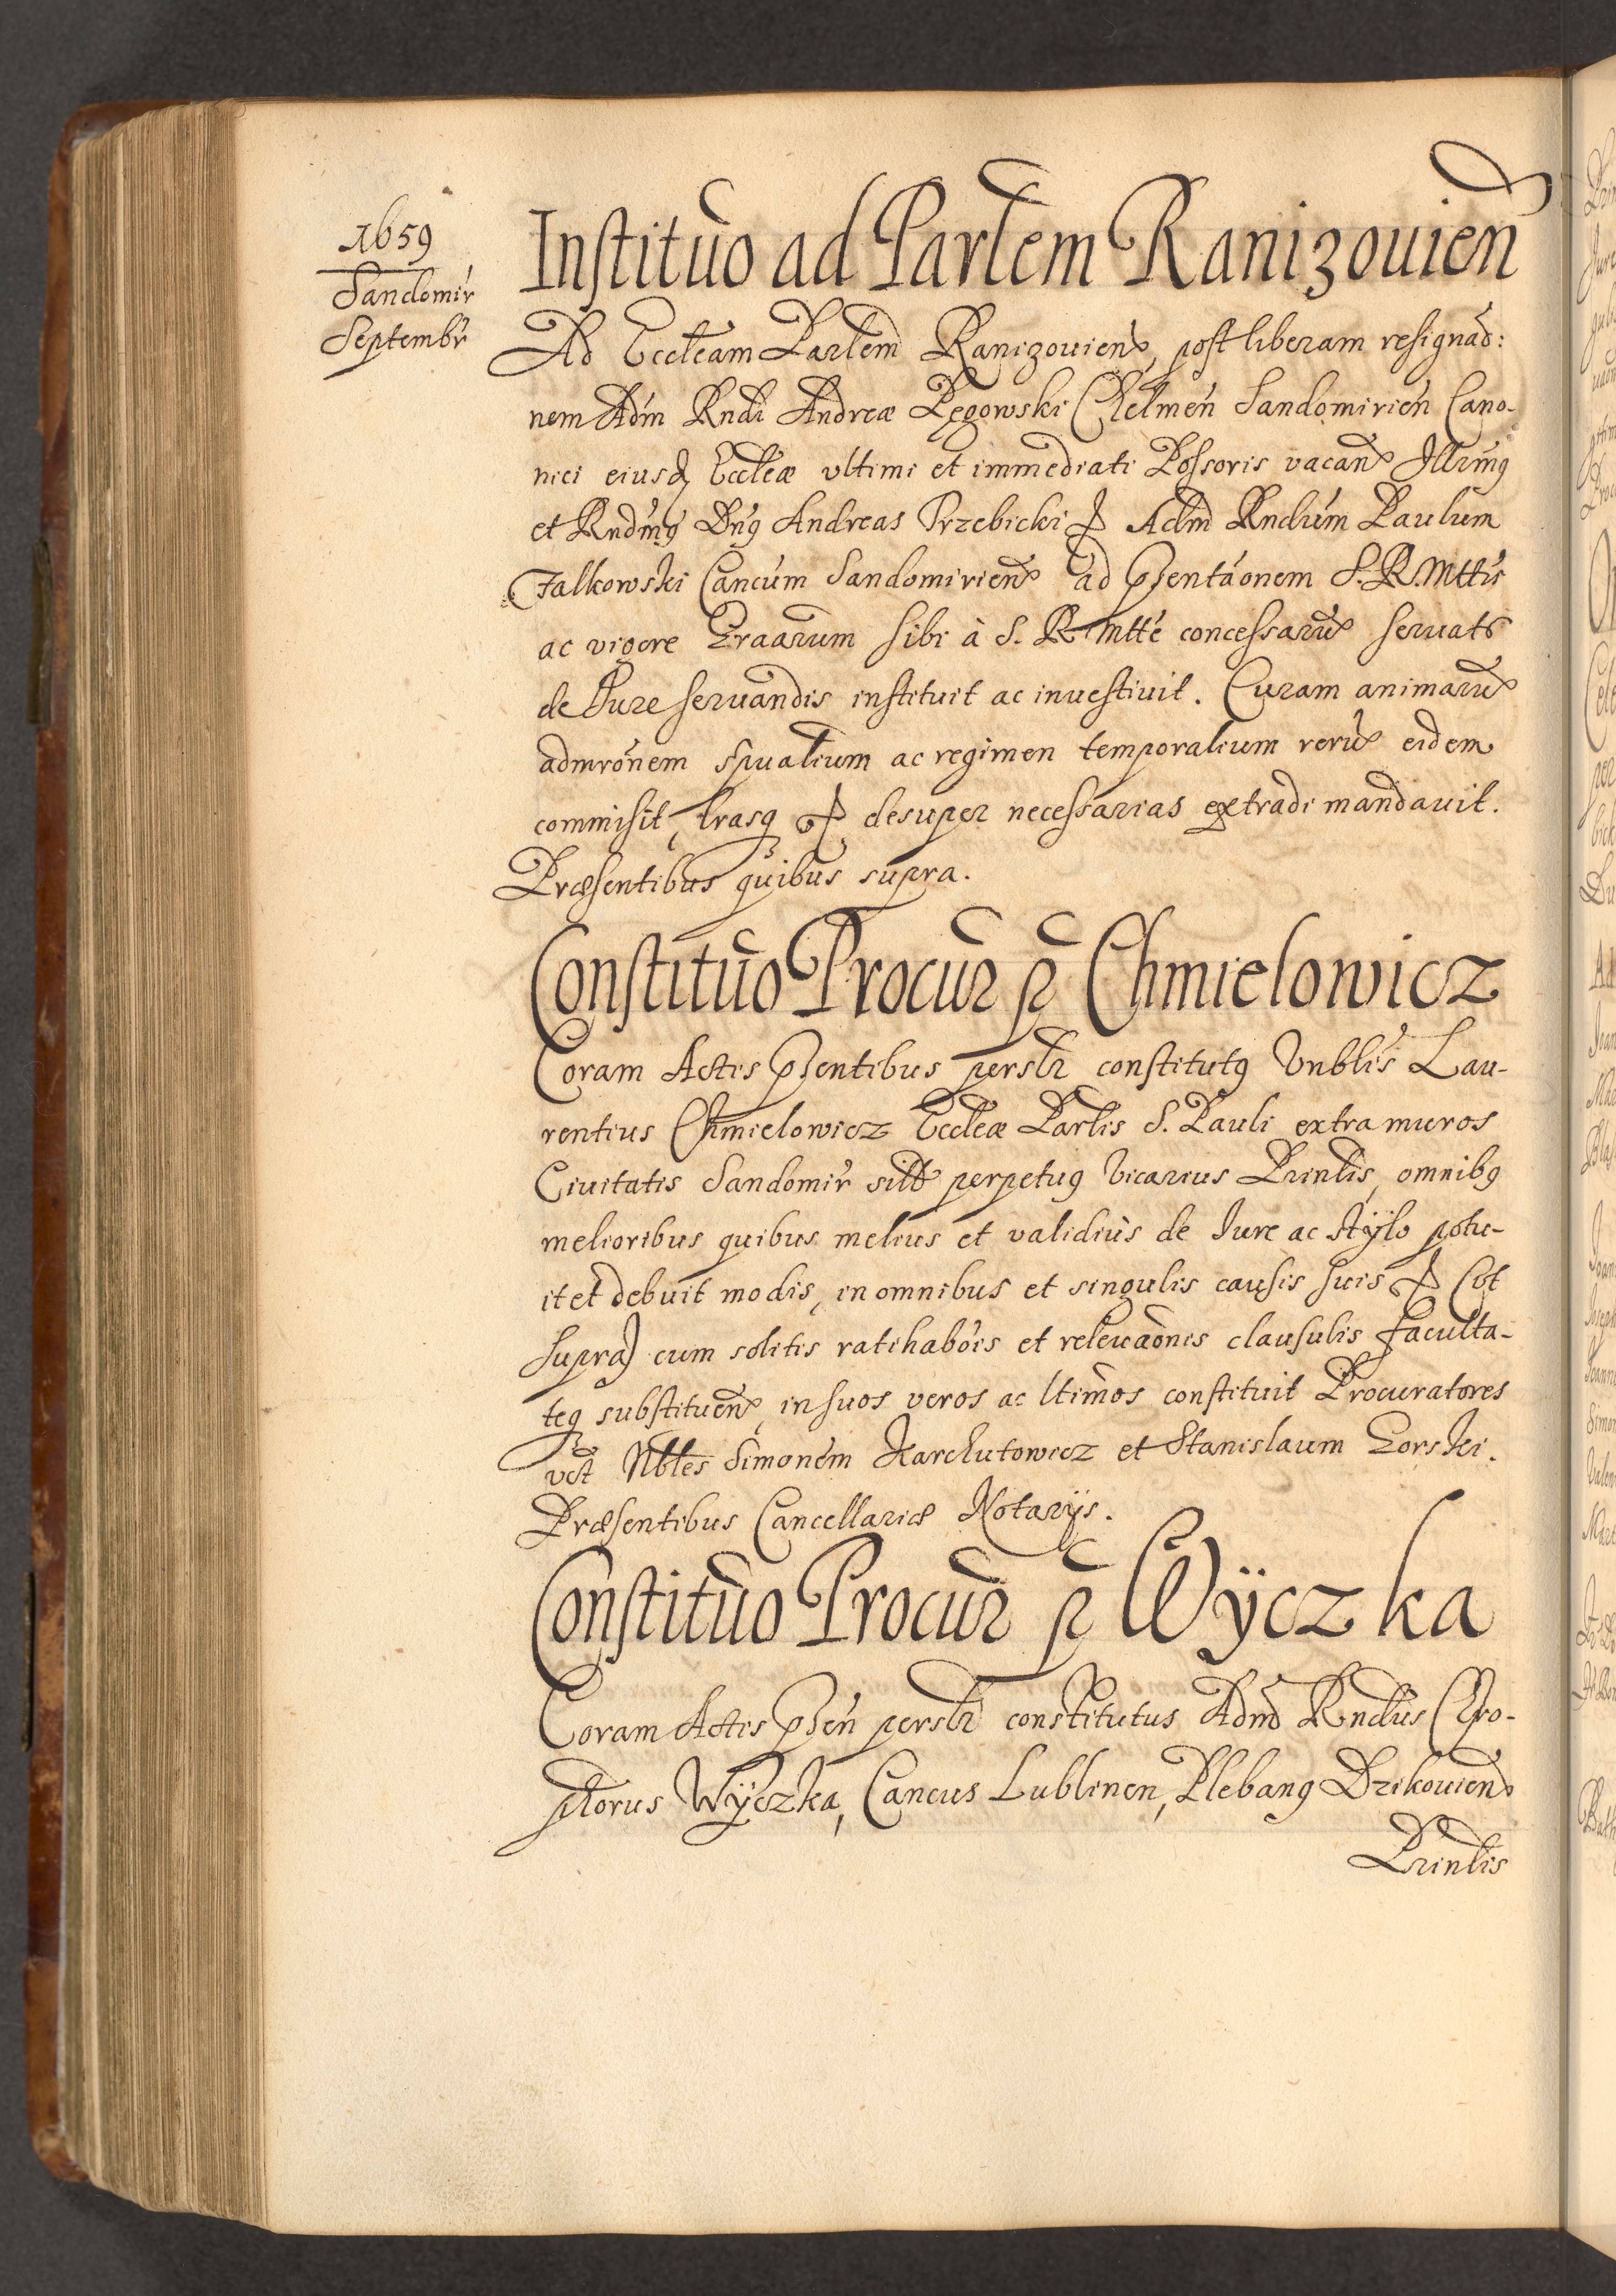 1659
Sandomir
Septembr
Institūo ad Parłem Ranizouien
Ad Eccłeam Parłem Ranizouien, post liberam resignaō:
nem Adm Rndi Andreæ Pęgowski Chelmen Sandomirien Cano-
nici eiusd Eccłeæ vltimi et immediati Possoris vacan Illrimg
et Rndmg Dng Andreas Trzebicki Adm Rndum Paulum
Falkowski Cancum Sandomirien ad pñtaonem S. R. Mttis
ac vigore Graarum sibi à S. R Mtte concessaru seruats
de Iure seruandis instituit ac inuestiuit. Curam animaru
admronem spualium ac regimen temporalium reru eidem
commisit, lrasq desuper necessarias extradi mandauit.
Præsentibus quibus supra.
Constitūo Procur p Chmielowicz
Coram Actis pñsentibus persłr constitutg Vnblis Lau-
rentius Chmielowicz Eccłeæ Parłis S. Pauli extra muros
Ciuitatis Sandomir perpetug Vicarius Prinłis, omnibg
melioribus quibus melius et validius de Iure ac stylo potu-
it et debuit modis, in omnibus et singulis causis suis (vt
supra) cum solitis ratihabois et releuaonis clausulis faculta-
teq substituen, in suos veros ac ltimos constituit Procuratores
vct Nbles Simonem Karchutowicz et Stanislaum Gorski.
Præsentibus Cancellariæ Notarÿs.
Constitūo Procur p Wÿczka
Coram Actis pñsen persłr constitutus Admd Rndus Chro-
phorus Wÿczka, Cancus Lublinen, Plebang Dzikouien
Prinłis